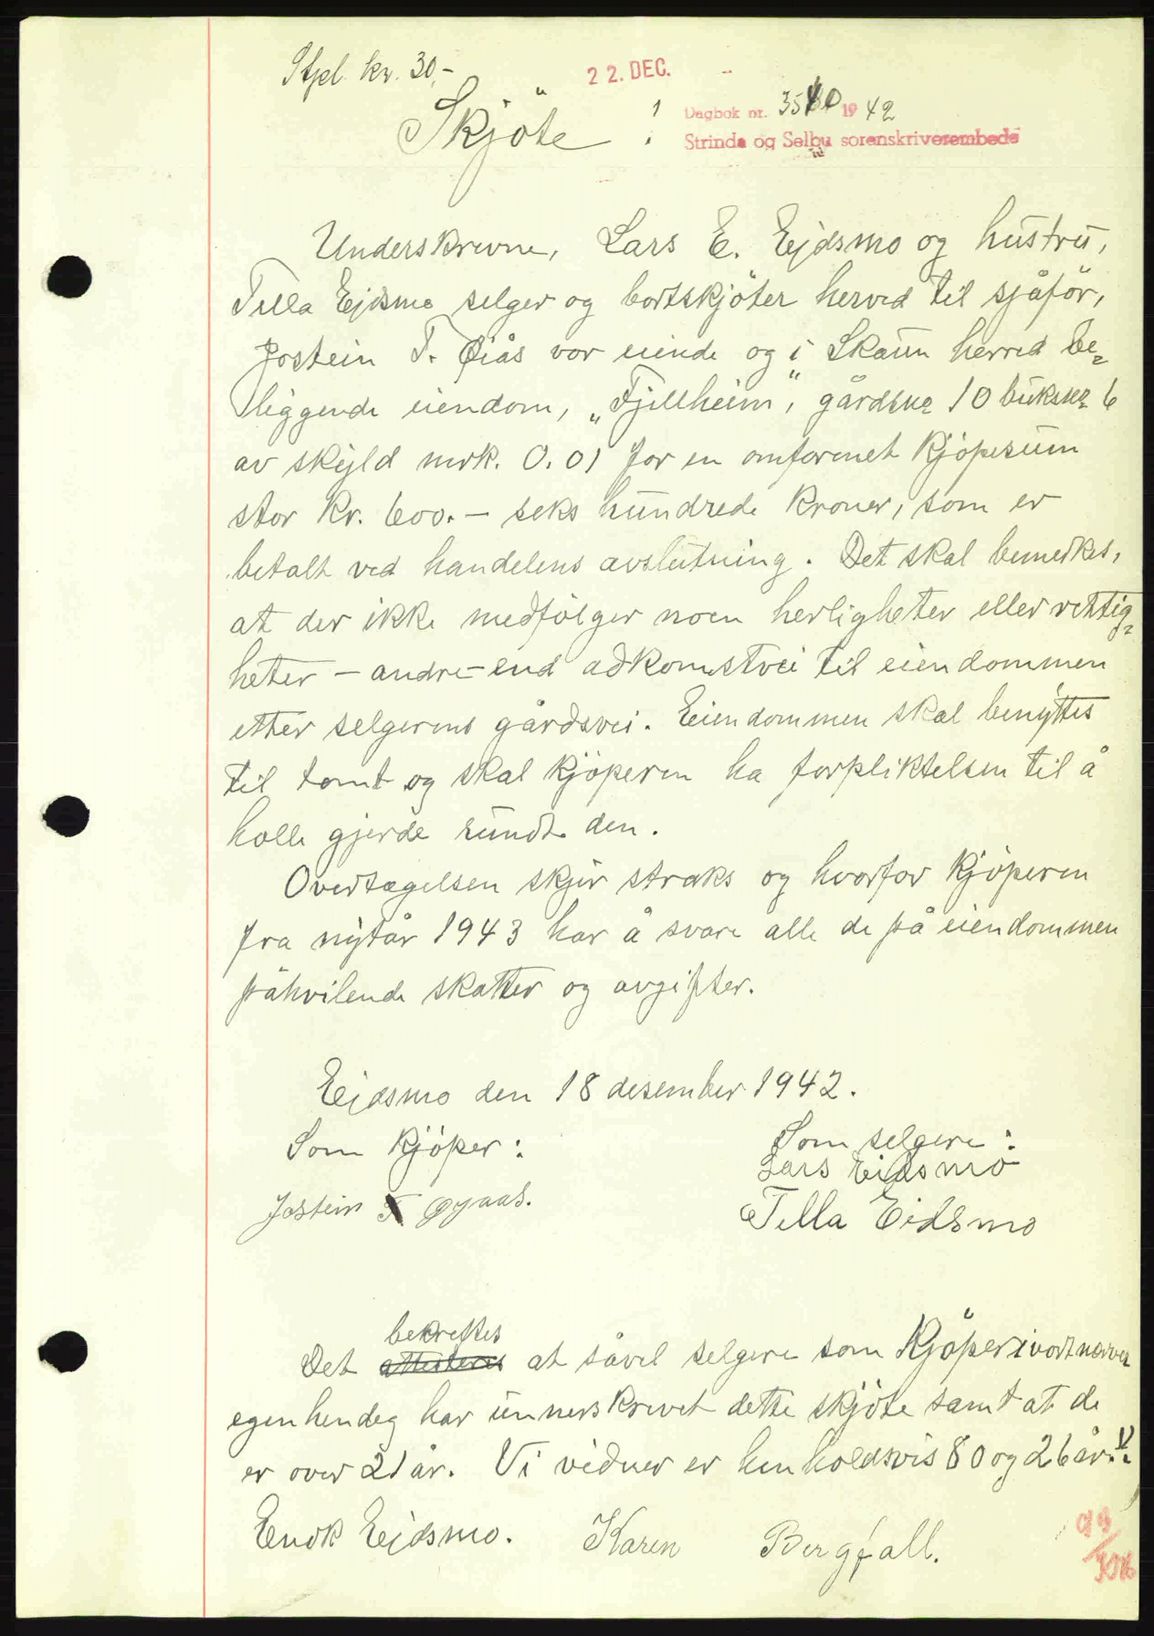 Stpl. kr. 30,-
22. DEC.
Skjöte
Dagbok nr. 1942
Strinda og Selbu sorenskriverembede
Underskrevne, Lars E. Ejdsmo og hustru,
Tella Ejdsmo selger og bortskjöter herved til sjåför,
Jostein T. Øiås vor eiende og i Skaun herred be=
liggende eiendom, „Fjellheim", gårdsnr 10 bruksnr 6
av skyld mrk. 0.01 for en omforenet kjöpesum
stor kr. 600.- seks hundrede kroner, som er
betalt ved handelens avslutning. Det skal bemerkes,
at der ikke medfölger noen herligheter eller rettig=
heter - andre - end adkomstvei til eiendommen
etter selgerens gårdsvei. Eiendommen skal benyttes
til tomt og skal kjöperen ha forpliktelsen til å
holle gjerde rundt den.
Overtagelsen skjer straks og hvorfor kjöperen
fra nytår 1943 har å svare alle de på eiendommen
påhvilende skatter og avgifter.
Ejdsmo den 18 desember 1942.
Som kjöper: Som selgere:
Jostein T Øyaas. Lars Eidsmo
Tella Eidsmo
bekreftes
Det attesteres at såvel selgere som kjöper i vort nærver
egenhendeg har unnerskrevet dette skjöte samt at de
er over 21 år. Vi vidner er henholdsvis 80 og 26 år.
Enok Ejdsmo. Karen Bergfall.